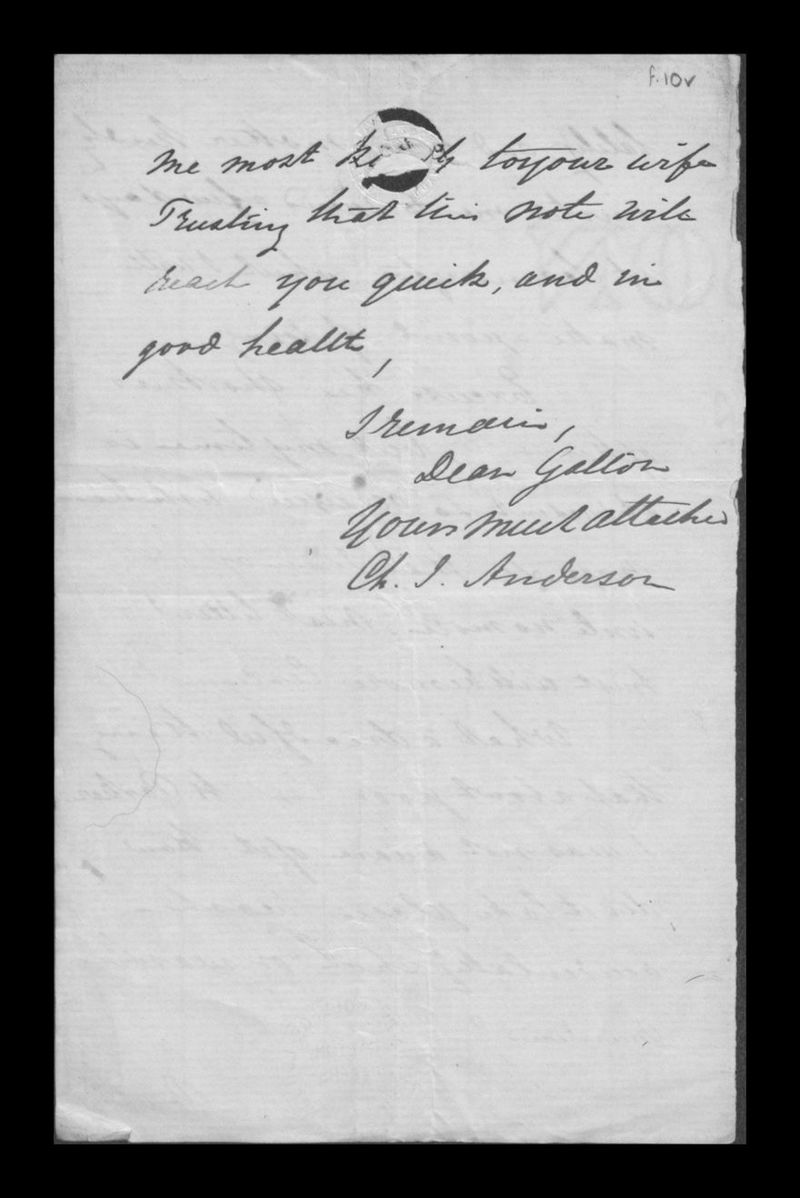 f.10v
me most ki ly to your wife
Trusting that this note will
reach you quick, and in
good health,
I remain,
Dear Galton
Yours much attached
Ch. J. Anderson